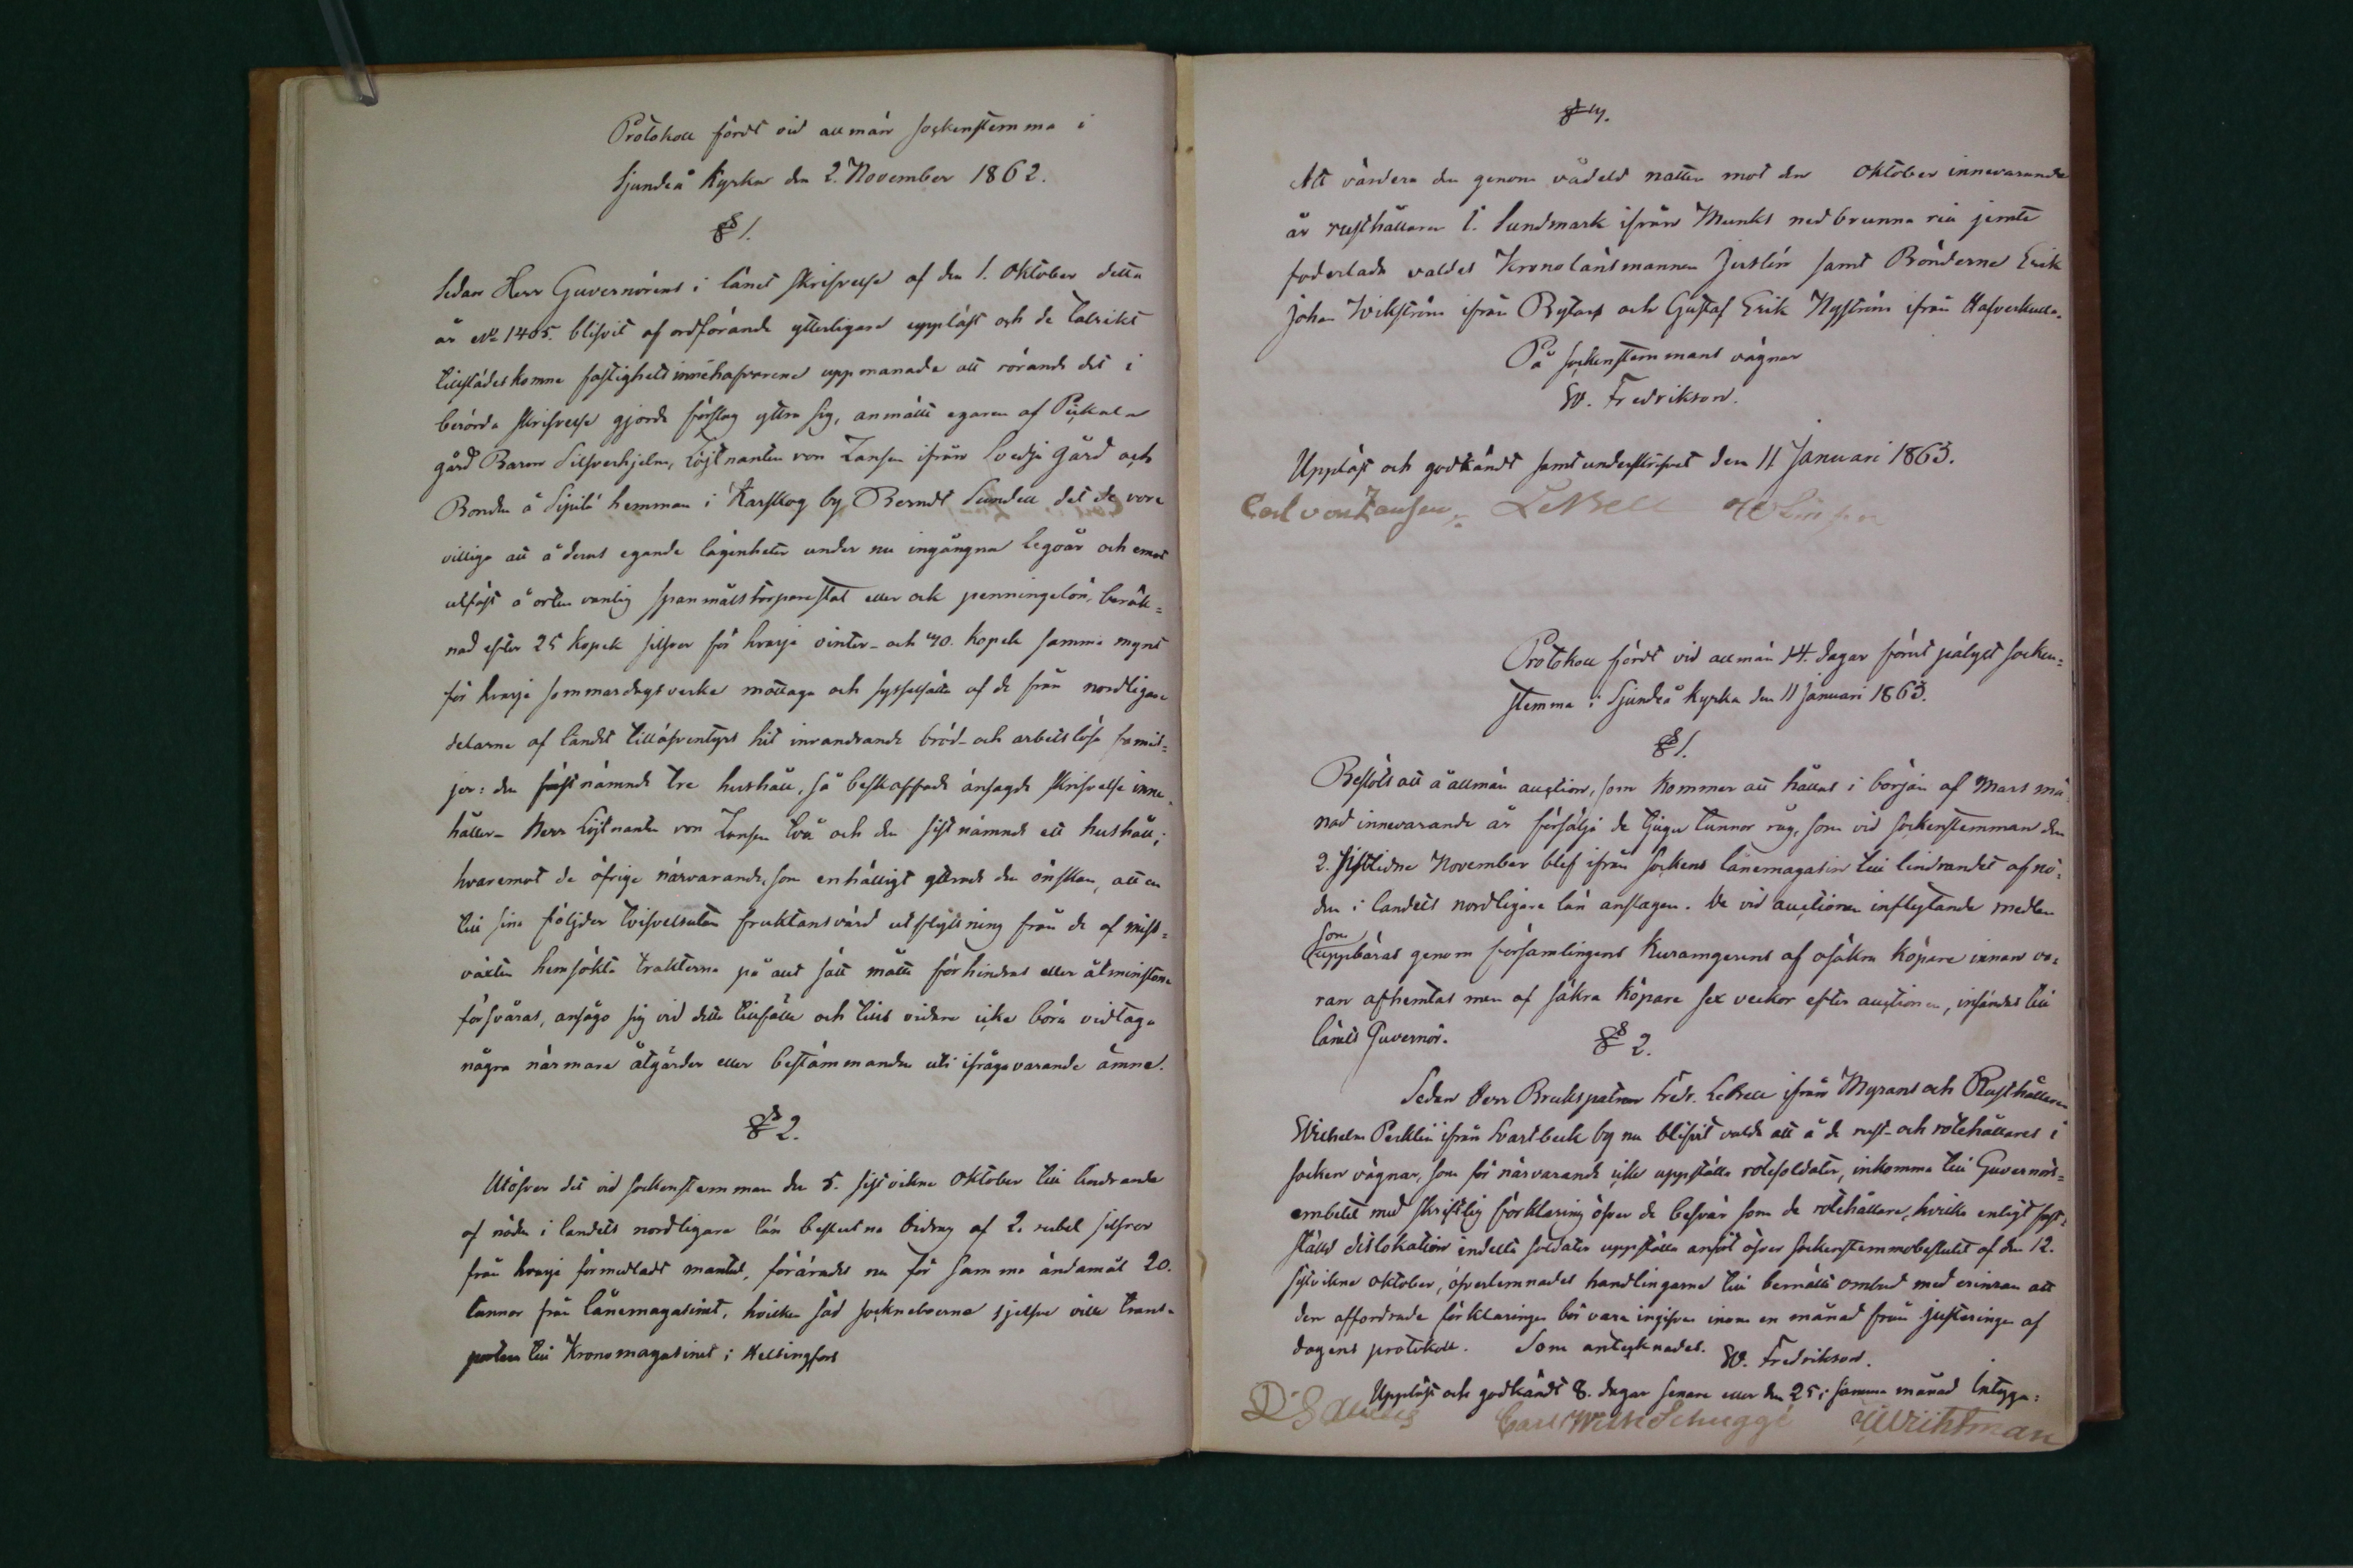 Protokoll fördt vid allmän sockenstemma i
Sjundeå Kyrka den 2. November 1862.
§ 1.
Sedan Herr Guvernörens i länet skrifvelse af den 1. Oktober detta
år No 1405. blifvit af ordförande ytterligare uppläst och de talrikt
tillstädeskomne fastighetsinnehafvarene uppmanade att rörande det i
berörda skrifvelse gjorda förslag yttra sig, anmälte egaren af Pickala
gård Baron Silfverhjelm, Löjtnanten von Zansen ifrån Svedja gård och
Bonden å Sipilä hemman i Karskog by Berndt Sundell det de vore
villiga att å deras egande lägenheter under nu ingångna legoår och emot
utfäst å orten vanlig spanmålstorparestat eller ock penningelön, beräk=
nad efter 25 kopek silfver för hvarje vinter- och 40. kopek samma mynt
för hvarje sommardagsverke mottaga och sysselsätta af de från nordligare
delarne af landet tilläfventyrs hit invandrande bröd- och arbetslösa famil=
jer: den först nämnde tre hushåll, så beskaffade ansagde skrifvelse inne=
håller- Herr Löjtnanten von Zansen två och den sistnämnde ett hushåll;
hvaremot de öfrige närvarande, som enhälligt yttrade den önskan, att en
till sina följder tvifvelsutan fruktansvärd utflyttning från de af miss=
växten hemsökta trakterna på allt sätt måtte förhindras eller åtminstone
försvåras, ansågo sig vid detta tillfälle och tills vidare icke böra vidtaga
några närmare åtgärder eller bestämmanden uti ifrågavarande ämne.
§ 2.
Utöfver det vid sockenstemman den 5. sistvikne Oktober till lindrande
af nöden i landets nordligare län beslutna bidrag af 2. rubel silfver
från hvarje förmedladt mantal, förärades nu för samma ändamål 20.
tunnor från lånemagasinet, hvilken säd sockneboerna sjelfve ville trans=
portera till Kronomagasinet i Helsingfors
§ 4.
Att värdera den genom vådeld natten mot den Oktober innevarande
år rusthållaren C. Sundmark ifrån Munks nedbrunna ria jemte
foderlada valdes Kronolänsmannen Juslén samt Bönderne Erik
Johan Wikström ifrån Bytars och Gustaf Erik Nyström ifrån Hafverkulla.
På sockenstemmans vägnar
W. Fredrikson.
Uppläst och godkändt samt underskrifvet den 11 Januari 1863.
Carl von Zansen. LeBell
Protokoll fördt vid allmän 14. dagar förut pålyst socken=
stemma i Sjundeå kyrka den 11 Januari 1863.
§ 1.
Beslöts att å allmän auction, som kommer att hållas i början af Mars må=
nad innevarande år försälja de tjugu tunnor råg, som vid sockenstemman den
2. sistlidne November blef ifrån sockens lånemagasin till lindrandet af nö=
den i landets nordligare län anslagen. De vid auctionen inflytande medlen
som
uppbäras genom församlingens Kuramgerens af osäkra köpare innan va=
ran afhemtas men af säkra köpare sex veckor efter auctionen, insändes till
länets Guvernör.
§ 2.
Sedan Herr Brukspatron Fredr. LeBell ifrån Myrans och Rusthållaren
Wilhelm Perklin ifrån Svartbeck by nu blifvit valde att å de rust- och rotehållares i
socken vägnar, som för närvarande icke uppställa rotesoldater, inkomma till Guvernörs=
embetet med skriftlig förklaring öfver de besvär som de rotehållare, hvilka enligt fast=
ställd dislokation indelta soldater uppställa anfört öfver sockenstemmobeslutet af den 12.
sistvikne Oktober, öfverlemnades handlingarne till bemälte ombud med erinran att
den affordrade förklaringen bör vara ingifven inom en månad från justeringen af
dagens protokoll. Som antecknades. W. Fredrikson.
Uppläst och godkändt 8. dagar senare eller den 25 i samma månad Intyga:
Carl Wilh Schuggé Wikhman